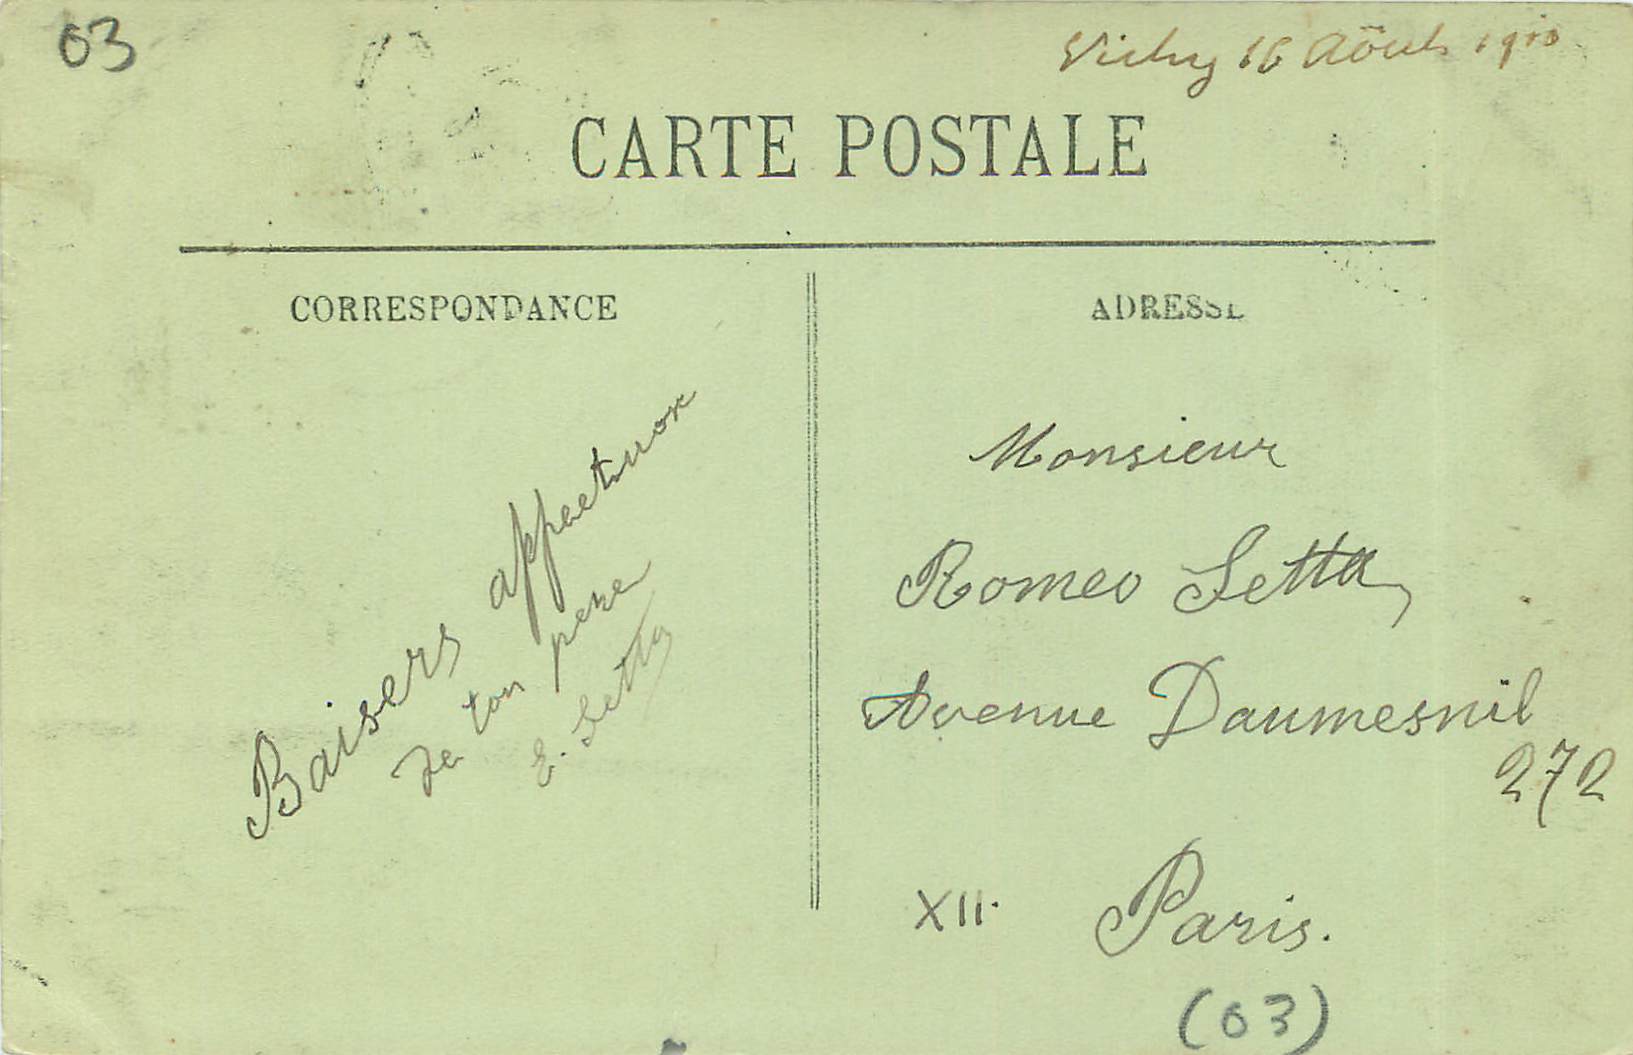 03
Vichy 16 Aôut 1910
CARTE POSTALE
CORRESPONDANCE
Baisers appectuox
de ton pere
E. Setta
ADRESSE
Monsieur
Romeo Setta
Avenue Daumesnil
272
XII. Paris.
(03)